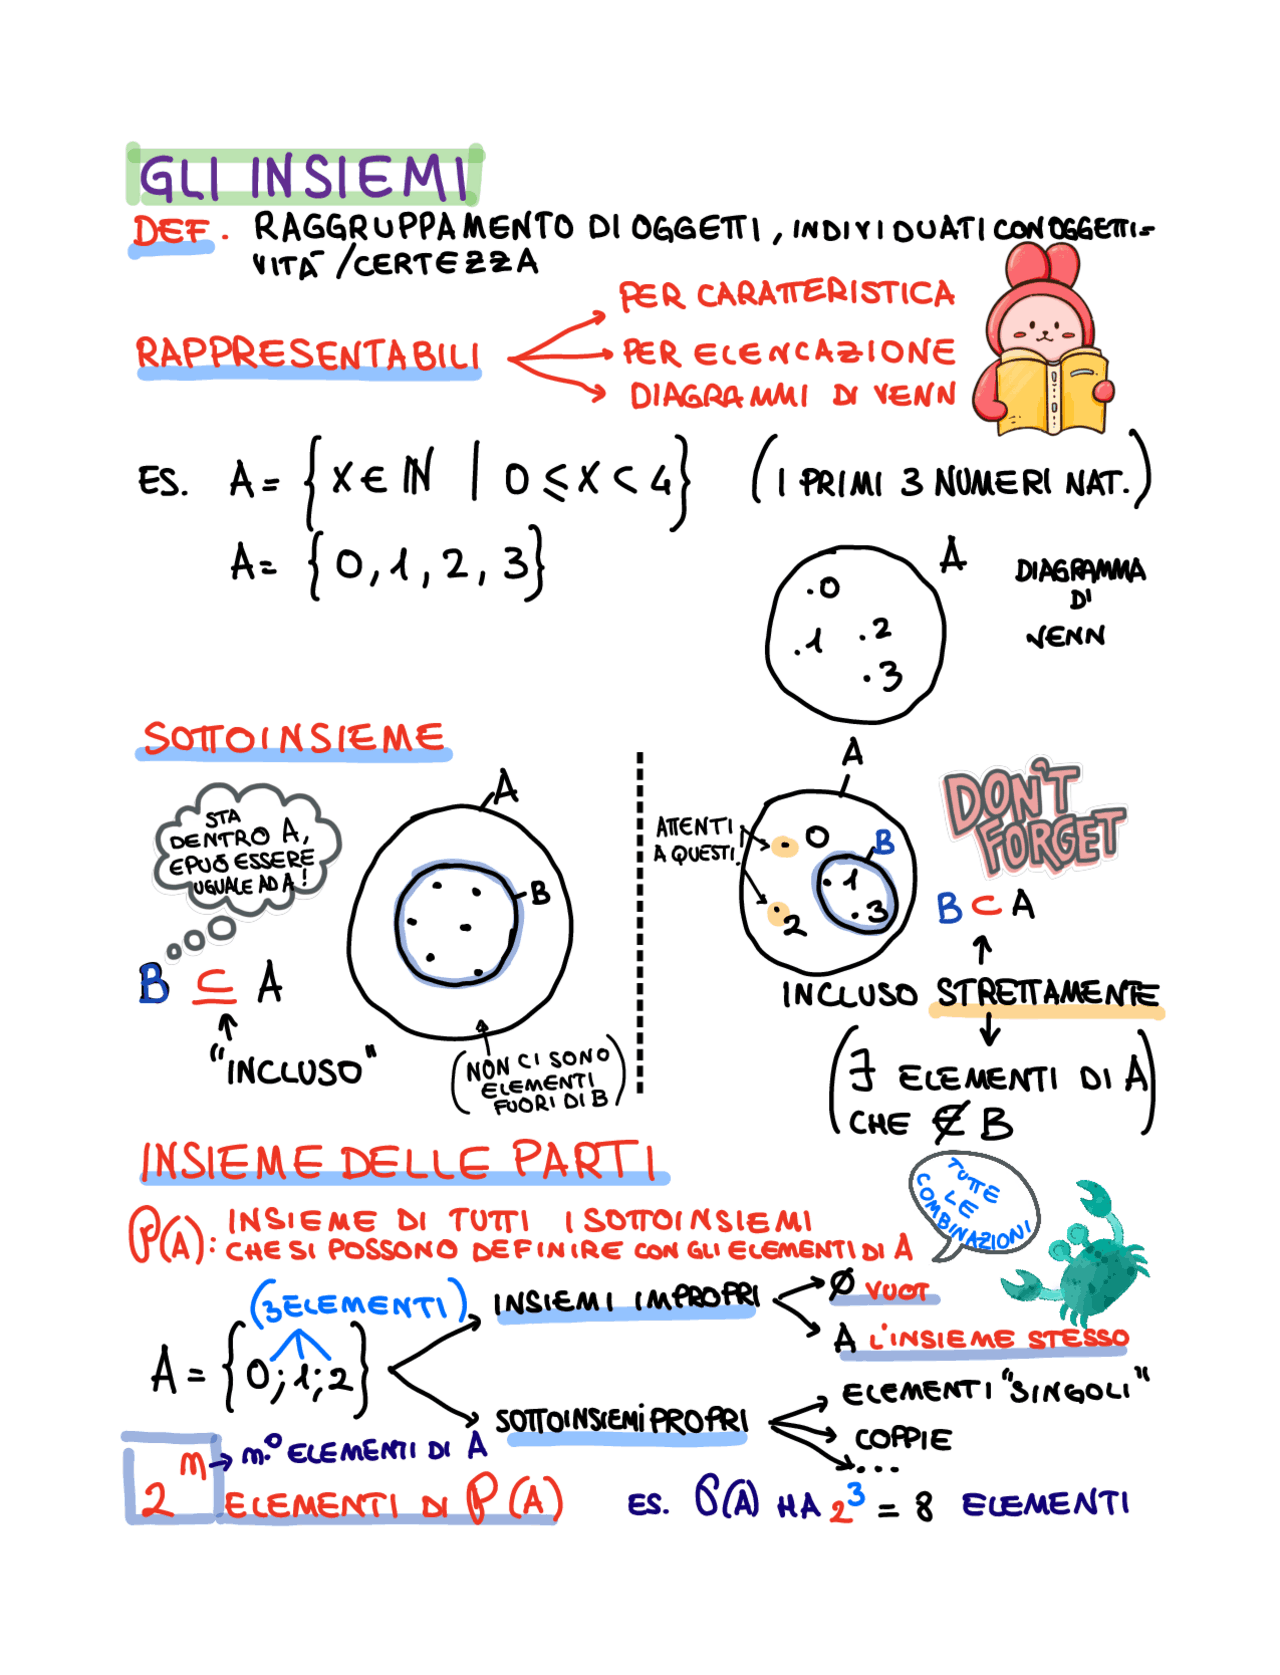 GLI INSIEMI
DEF. RAGGRUPPAMENTO DI OGGETTI, INDIVIDUATI CON OGGETTI=
VITÀ / CERTEZZA
RAPPRESENTABILI
PER CARATTERISTICA
PER ELENCAZIONE
DIAGRAMMI DI VENN
ES. A = { X ∈ ℕ | 0 ⩽ X < 4} (I PRIMI 3 NUMERI NAT.)
A = {0, 1, 2, 3}
A
.0
.1 .2
.3
DIAGRAMMA
DI
VENN
SOTTOINSIEME
STA
DENTRO A,
E PUÒ ESSERE
UGUALE AD A!
B ⊆ A
"INCLUSO"
A
B
(NON CI SONO
ELEMENTI
FUORI DI B)
A
ATTENTI
A QUESTI!
0
B
.1
.3
2
DON'T
FORGET
B ⊂ A
INCLUSO STRETTAMENTE
(∃ ELEMENTI DI A
CHE ∉ B)
INSIEME DELLE PARTI
P(A): INSIEME DI TUTTI I SOTTOINSIEMI
CHE SI POSSONO DEFINIRE CON GLI ELEMENTI DI A
TUTTE
LE
COMBINAZIONI
(3 ELEMENTI)
A = {0; 1; 2}
INSIEMI IMPROPRI
Ø VUOT
A L'INSIEME STESSO
SOTTOINSIEMI PROPRI
ELEMENTI "SINGOLI"
COPPIE
...
2ⁿ → n.° ELEMENTI DI A
ELEMENTI DI P(A)
ES. P(A) HA 2³ = 8 ELEMENTI